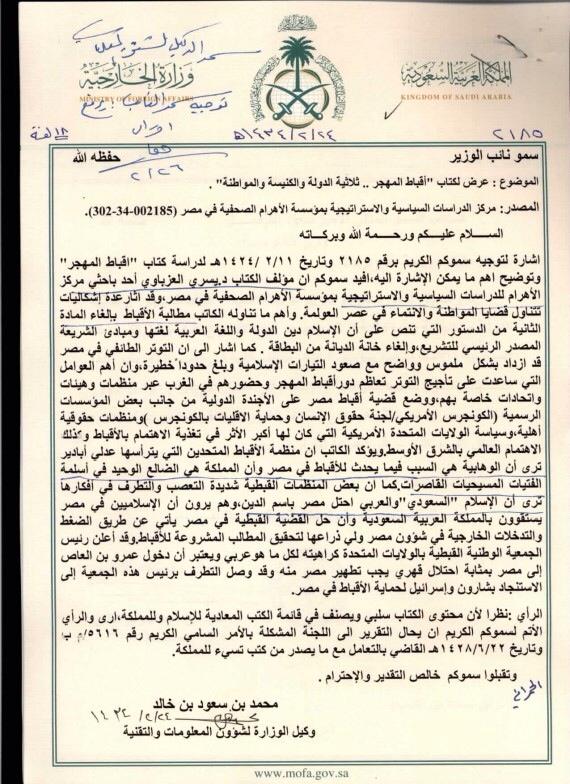 المملكة العربية السعودية
KINGDOM OF SAUDI ARABIA
وزارة الخارجية
MINISTRY OF FOREIGN AFFAIRS
٢١٨٥
١٤٣٤/٢/٢٤هـ
سمو نائب الوزير حفظه الله
الموضوع : عرض لكتاب "أقباط المهجر .. ثلاثية الدولة والكنيسة والمواطنة" .
المصدر: مركز الدراسات السياسية والاستراتيجية بمؤسسة الأهرام الصحفية في مصر (002185-34-302).
السلام عليكم ورحمة الله وبركاته
اشارة لتوجيه سموكم الكريم برقم ٢١٨٥ وتاريخ ١٤٢٤/٢/١١هـ لدراسة كتاب "اقباط المهجر"
وتوضيح اهم ما يمكن الإشارة اليه،افيد سموكم ان مؤلف الكتاب د.يسري العزباوي أحد باحثي مركز
الأهرام للدراسات السياسية والاستراتيجية بمؤسسة الأهرام الصحفية في مصر،وقد اثارعدة إشكاليات
تتناول قضايا المواطنة والانتماء في عصر العولمة. وأهم ما تناوله الكاتب مطالبة الأقباط بإلغاء المادة
الثانية من الدستور التي تنص على أن الإسلام دين الدولة واللغة العربية لغتها ومبادئ الشريعة
المصدر الرئيسي للتشريع،وإلغاء خانة الديانة من البطاقة . كما اشار الى ان التوتر الطائفي في مصر
قد ازداد بشكل ملموس وواضح مع صعود التيارات الإسلامية وبلغ حدودا خطيرة،وان أهم العوامل
التي ساعدت على تأجيج التوتر تعاظم دورأقباط المهجر وحضورهم في الغرب عبر منظمات وهيئات
واتحادات خاصة بهم،ووضع قضية أقباط مصر على الأجندة الدولية من جانب بعض المؤسسات
الرسمية (الكونجرس الأمريكي/لجنة حقوق الإنسان وحماية الاقليات بالكونجرس )ومنظمات حقوقية
أهلية،وسياسة الولايات المتحدة الأمريكية التي كان لها أكبر الأثر في تغذية الاهتمام بالأقباط وكذلك
الاهتمام العالمي بالشرق الأوسط.ويؤكد الكاتب ان منظمة الأقباط المتحدين التي يترأسها عدلي أبادير
ترى أن الوهابية هي السبب فيما يحدث للأقباط في مصر وأن المملكة هي الضالع الوحيد في أسلمة
الفتيات المسيحيات القاصرات،كما ان بعض المنظمات القبطية شديدة التعصب والتطرف في أفكارها
ترى أن الإسلام "السعودي"والعربي احتل مصر باسم الدين،وهم يرون أن الإسلاميين في مصر
يستقوون بالمملكة العربية السعودية وأن حل القضية القبطية في مصر يأتي عن طريق الضغط
والتدخلات الخارجية في شؤون مصر ولي ذراعها لتحقيق المطالب المشروعة للأقباط،وقد أعلن رئيس
الجمعية الوطنية القبطية بالولايات المتحدة كراهيته لكل ما هوعربي ويعتبر أن دخول عمرو بن العاص
إلى مصر بمثابة احتلال قهري يجب تطهير مصر منه وقد وصل التطرف برئيس هذه الجمعية إلى
الاستنجاد بشارون وإسرائيل لحماية الأقباط في مصر.
الرأي :نظرا لأن محتوى الكتاب سلبي ويصنف في قائمة الكتب المعادية للإسلام وللمملكة،ارى والرأي
الأتم لسموكم الكريم ان يحال التقرير الى اللجنة المشكلة بالأمر السامي الكريم رقم ٥٦١٦/م ب
وتاريخ ١٤٢٨/٦/٢٢هـ القاضي بالتعامل مع ما يصدر من كتب تسيء للمملكة.
وتقبلوا سموكم خالص التقدير والإحترام .
محمد بن سعود بن خالد
وكيل الوزارة لشؤون المعلومات والتقنية
www.mofa.gov.sa